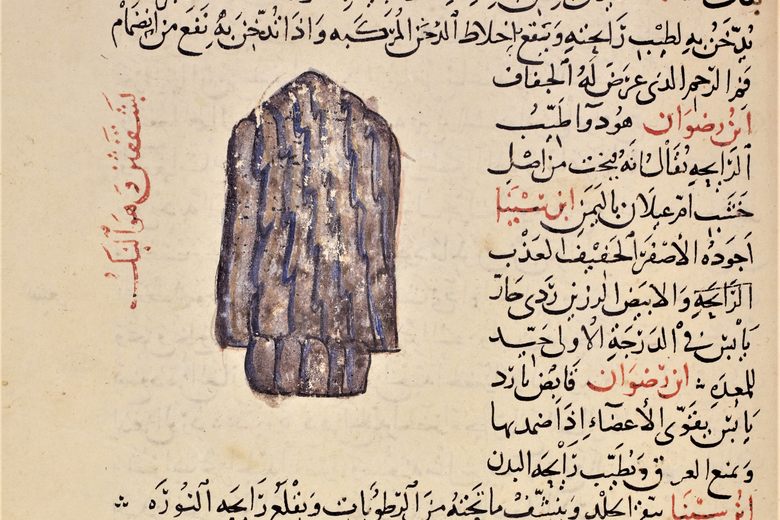 يدخن به لطيب رايحته ويقع اخلاط الدخن المركبه واذا تدخن به نفع من انضمام
فم الرحم الذى عرض له الجفاف
ابن رضوان هو دوآ طيب
الرايحه يقال انه ينحت من اصل
خشب ام غيلان باليمن ابن سينا
اجوده الاصفر الخفيف العذب
الرايحة والابيض الرزين ردى حار
يابس فى الدرجة الاولى جيد
للمعده ابن رضوان قابض بارد
يابس يقوى الأعضاء اذا ضمد بها
ويمنع العرق ويطيب رايحه البدن
ابن سينا ينقى الجلد وينشف ما تحته من الرطوبات ويقلع رايحه النوره
وهو البنك